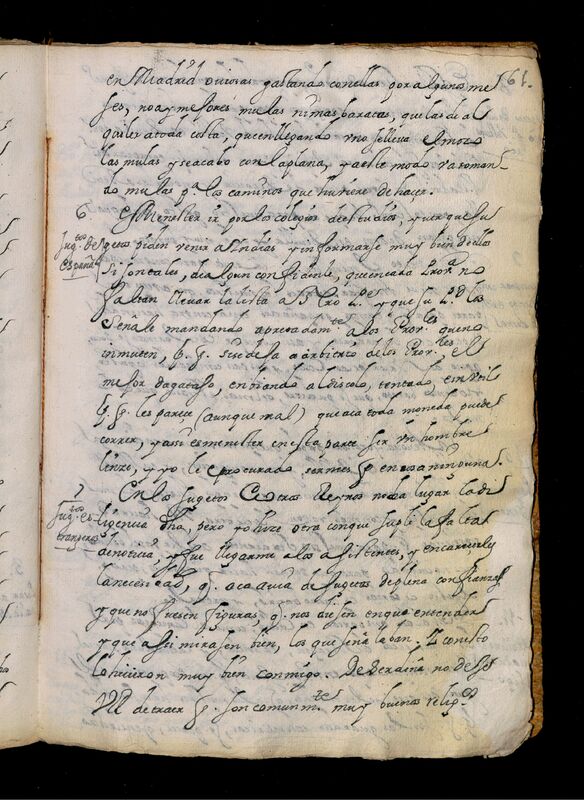 61.
en Madrid oviosas gastando con ellas por algunos me
ses, no ay mejores mulas ni mas baratas, que las de al
quiler a toda costa, que en llegando uno se lleva el moço
las mulas y se acabo con la plana, y a este modo va toman
do mulas pª los caminos que huviere de haçer.
6 Es Menester ir por los colegios de estudios, y ver que su
Sug.tos de España
getos piden venir a Indias y informarse muy bien de ellos
si son tales, de algun confidente, que en cada Provª no
faltan llevar la lista a N. P.e y que su P.d los
Señale mandando apretadam.te a los Prov.les que no
inmuten, p. q. si se dexa a arbitrio de los Prov.les el
mejor dagatoso, embiando al discolo, tentado, inutil
p. q. les parece (aunque mal) que aca toda moneda puede
correr, y assi es menester en esta parte ser un hombre
y yo le e procurado ser mes q en otra ninguna.
7 En los sugetos Estrangeros no ha lugar la di
Sug.tos estrangeros
ligencia dha, pero yo hize otra con que suple la falta
de noticia, y fue llegarme a los asistentes, y encarecerles
la necesidad, q. aca avia de sugetos de plena confianza
y que no fuesen figuras, q. nos diesen en que entender
y que assi mirasen bien, los que señalaban. I con esto
lo hicieron muy bien conmigo. De Serdeña no dexe
VR de traer q. son comunm.te muy buenos relig.os